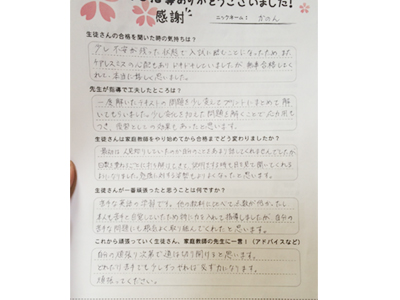 ご指導ありがとうございました!
感謝
ニックネーム:
生徒さんの合格を聞いた時の気持ちは?
少し不安が残った状態で入試に臨むことになったため、また
ケアレスミスの心配もありドキドキしていましたが、無事合格しましてく
れて、本当に嬉しく思いました。
先生が指導で工夫したところは?
一度解いたテキストの問題を少し変えてプリントにまとめて解
いてもらいました。少し変化させた問題を解くことで応用力も
つき、復習としての効果もあったと思います。
生徒さんは家庭教師をやり始めてから合格までどう変わりましたか?
最初は人見知りしていたのか自分のことをあまり話してくれませんでしたが
生徒さんが一番頑張ったと思うことは何ですか?
苦手な英語の学習です。他の教科に比べて点数が低かったし
本人も苦手と自覚していたため特に力を入れて指導しましたが、自分の
苦手な問題にも根気よく取り組んでくれたと思います。
これから頑張っていく生徒さん、家庭教師の先生に一言!(アドバイスなど)
自分の頑張り次第で道は切り開けると思います。
どれだけ苦手でも少しずつやれば必ず力になります。
頑張ってください。